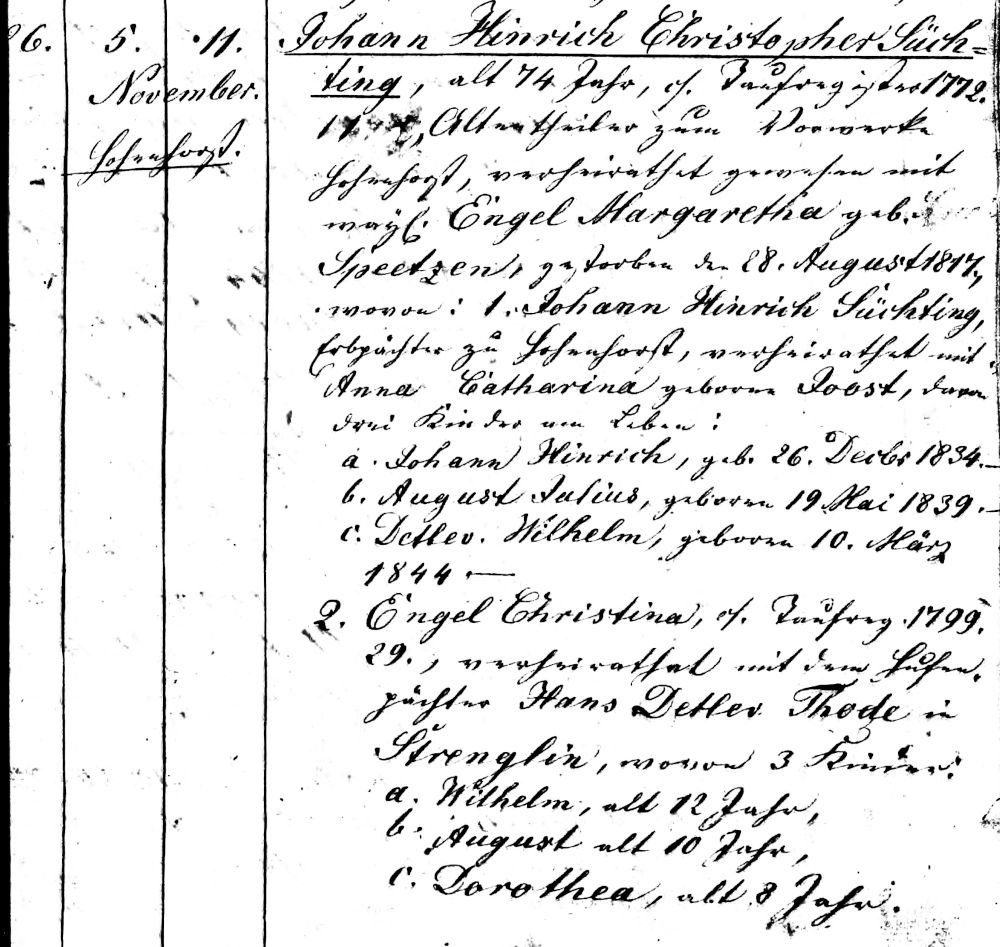 26. 5. 11. Johann Hinrich Christopher Süch=
November. ting, alt 74 Jahr, cf. Taufregister 1772.
Altentheiler zum Vorwerke
Hohenhorst. Hohenhorst, verheirathet gewesen mit
wayl. Engel Margaretha geb.
Speetzen, gestorben den 28. August 1817.,
wovon: 1. Johann Hinrich Süchting,
Erbpächter zu Hohenhorst, verheirathet mit
Anna Catharina geborne Joost, davon
drei Kinder am Leben:
a. Johann Hinrich, geb. 26. Decbr 1834.
b. August Julius, geboren 19 Mai 1839.
c. Detlev. Wilhelm, geboren 10. März
1844.
2. Engel Christina, cf. Taufreg. 1799.
29., verheirathet mit dem Hufen-
pächter Hans Detlev Thode in
Strenglin, wovon 3 Kinder:
a. Wilhelm, alt 12 Jahr,
b. August alt 10 Jahr,
c. Dorothea, alt 8 Jahr.